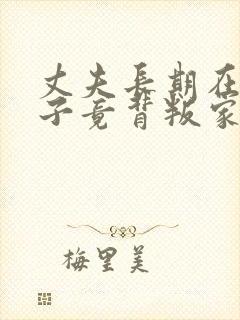 丈夫长期在
子竟背叛家
梅里美